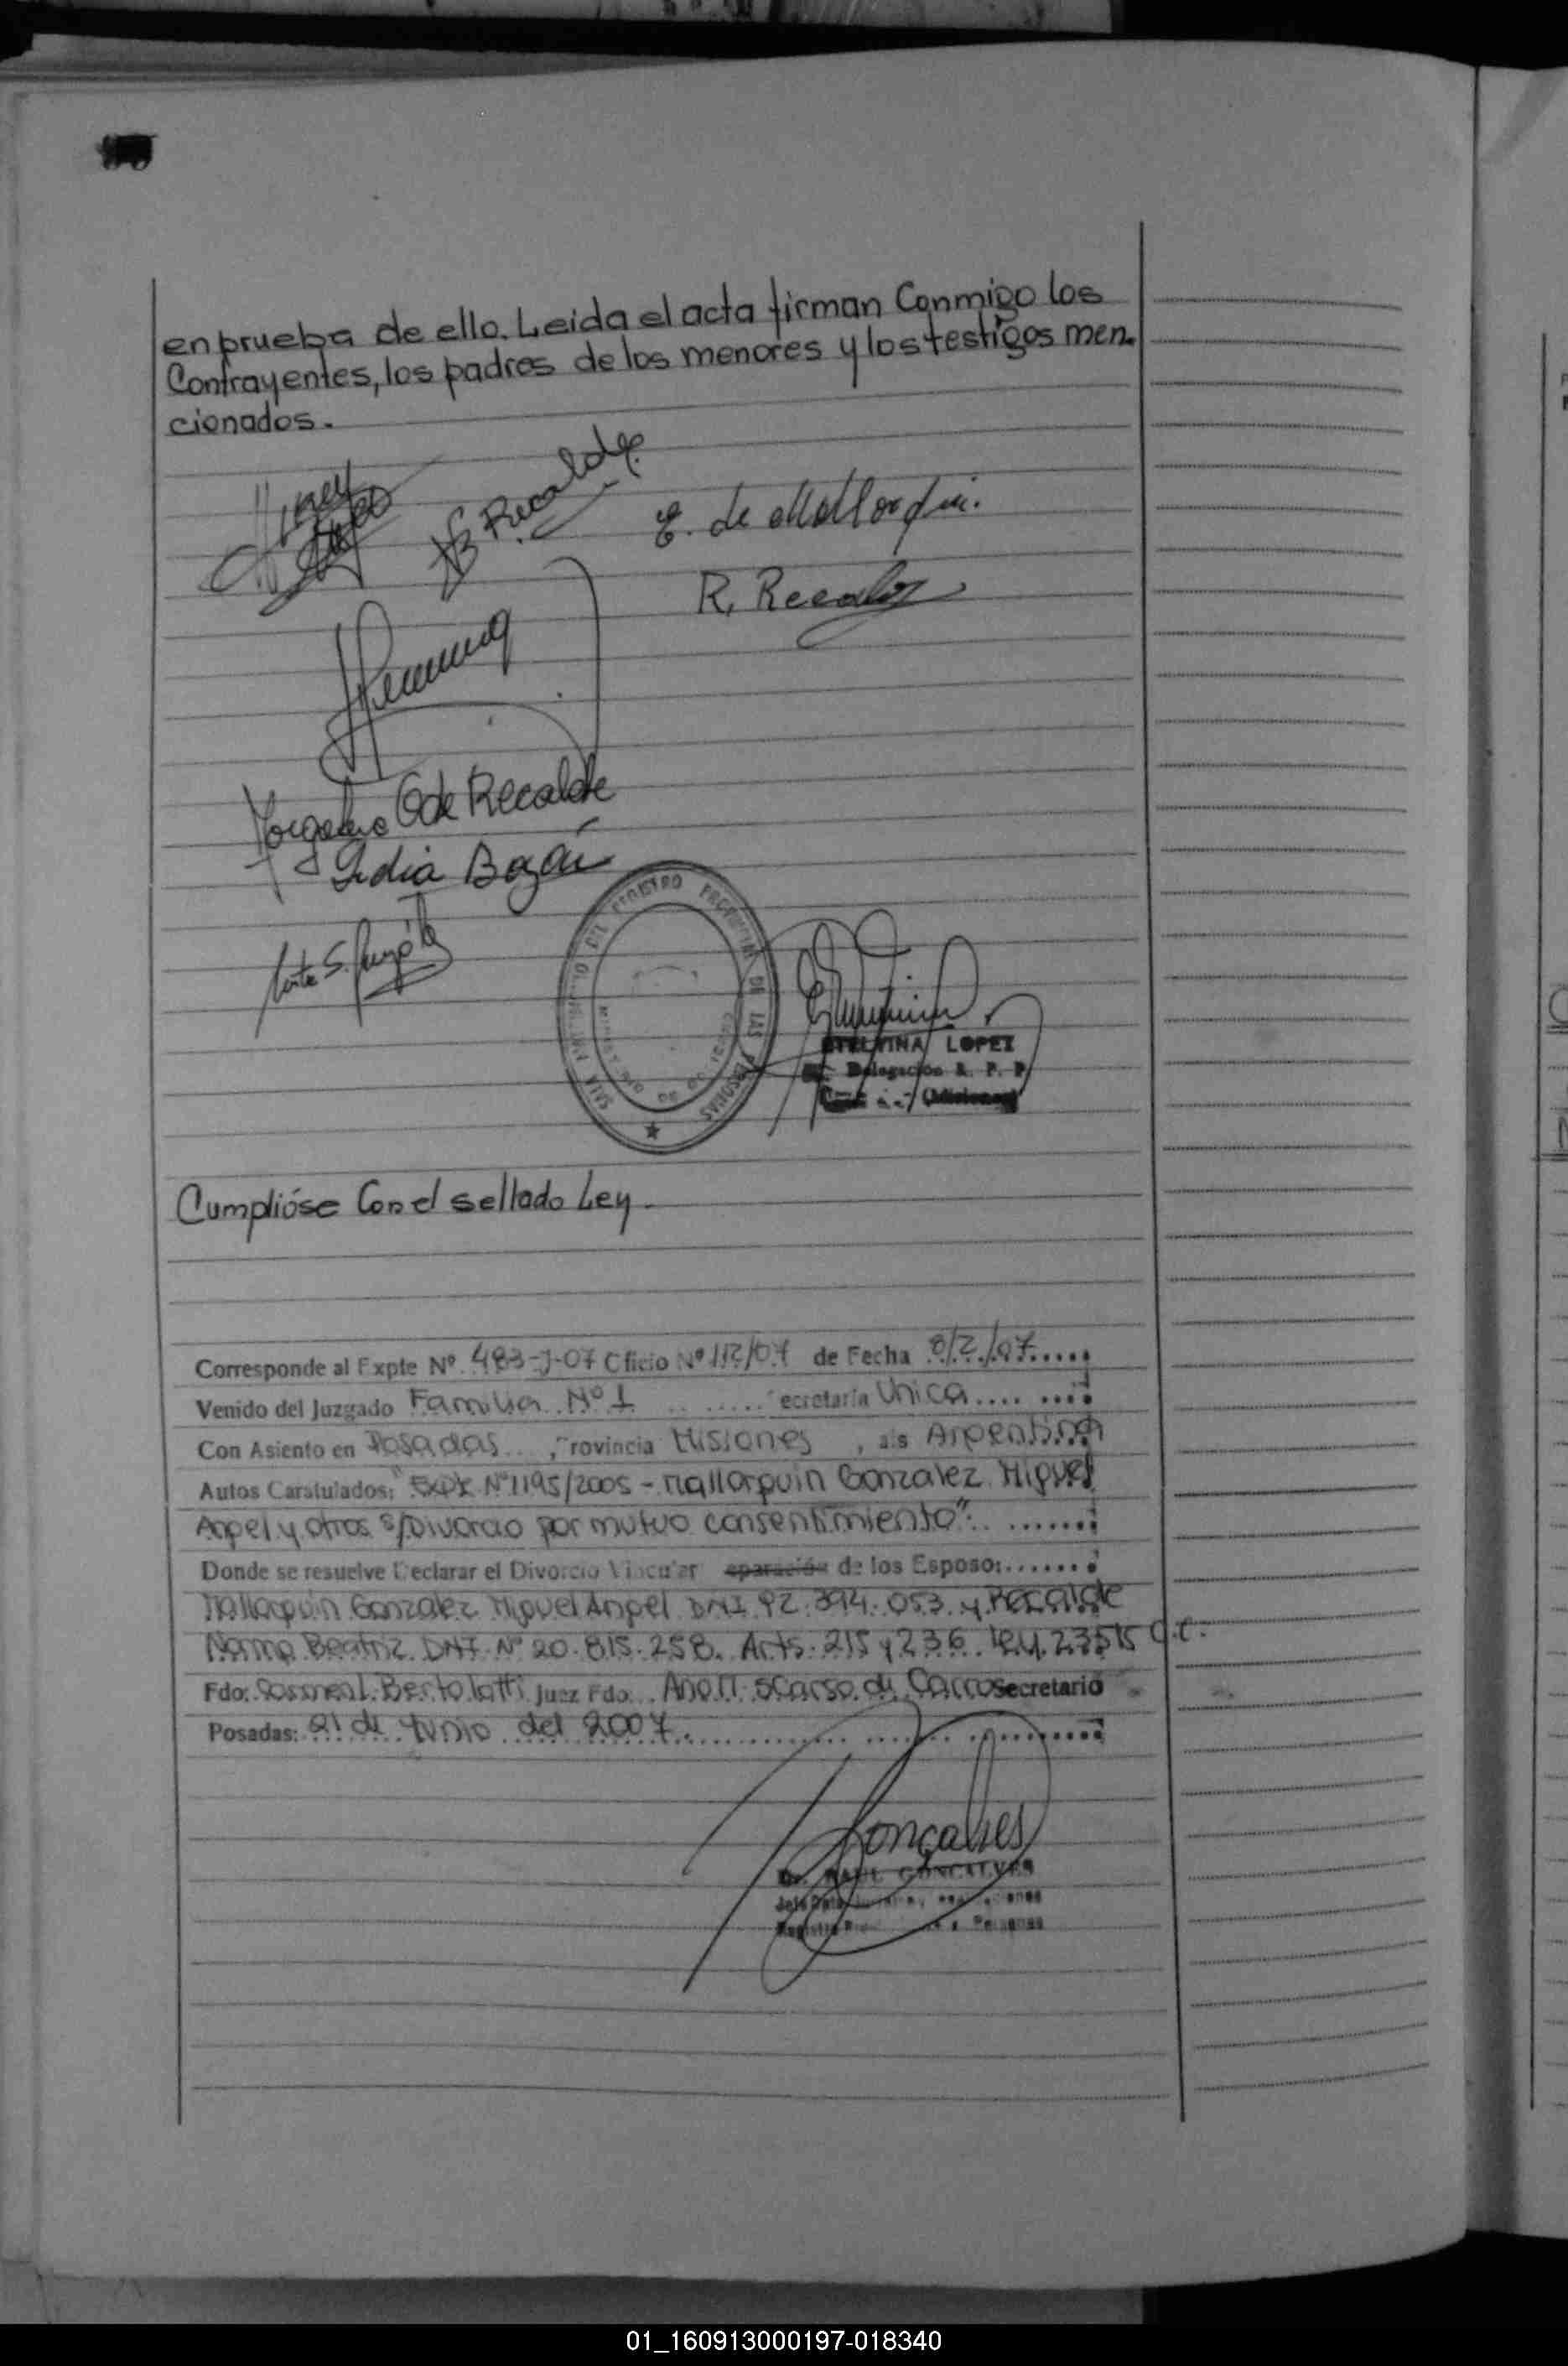 en prueba de ello. Leida el acta firman Conmigo los
Contrayentes, los padres de los menores y los testigos men-
cionados.
NB Recalde
E. de Mallorquin.
R. Recalde
Margarita G de Recalde
Lidia Bazán
REGISTRO PROVINCIAL DE LAS PERSONAS
ETELVINA LOPEZ
Delegación R. P. P.
(Misiones)
Cumplióse Con el sellado Ley.
Corresponde al Expte Nº 483-J-07 Oficio Nº 112/07 de Fecha 8/2/07
Venido del Juzgado Familia Nº 1 ecretaria Unica
Con Asiento en Posadas, rovincia Misiones, ais Argentina
Autos Caratulados: "Expte Nº 1195/2005 - Mallorquin Gonzalez Miguel
Angel y otros s/Divorcio por mutuo consentimiento".
Donde se resuelve Declarar el Divorcio Vincular eparación de los Esposos:
Mallorquin Gonzalez Miguel Angel DNI 92.394.053 y Recalde
Norma Beatriz DNI Nº 20.815.258. Arts. 215 y 236 ley 23515 C.C.
Fdo: L. Bertolotti Juez Fdo: Ana M. Scarso di Carro Secretario
Posadas: 21 de Junio del 2007.
Gonçalves
Dr. RAUL GONCALVES
01_160913000197-018340